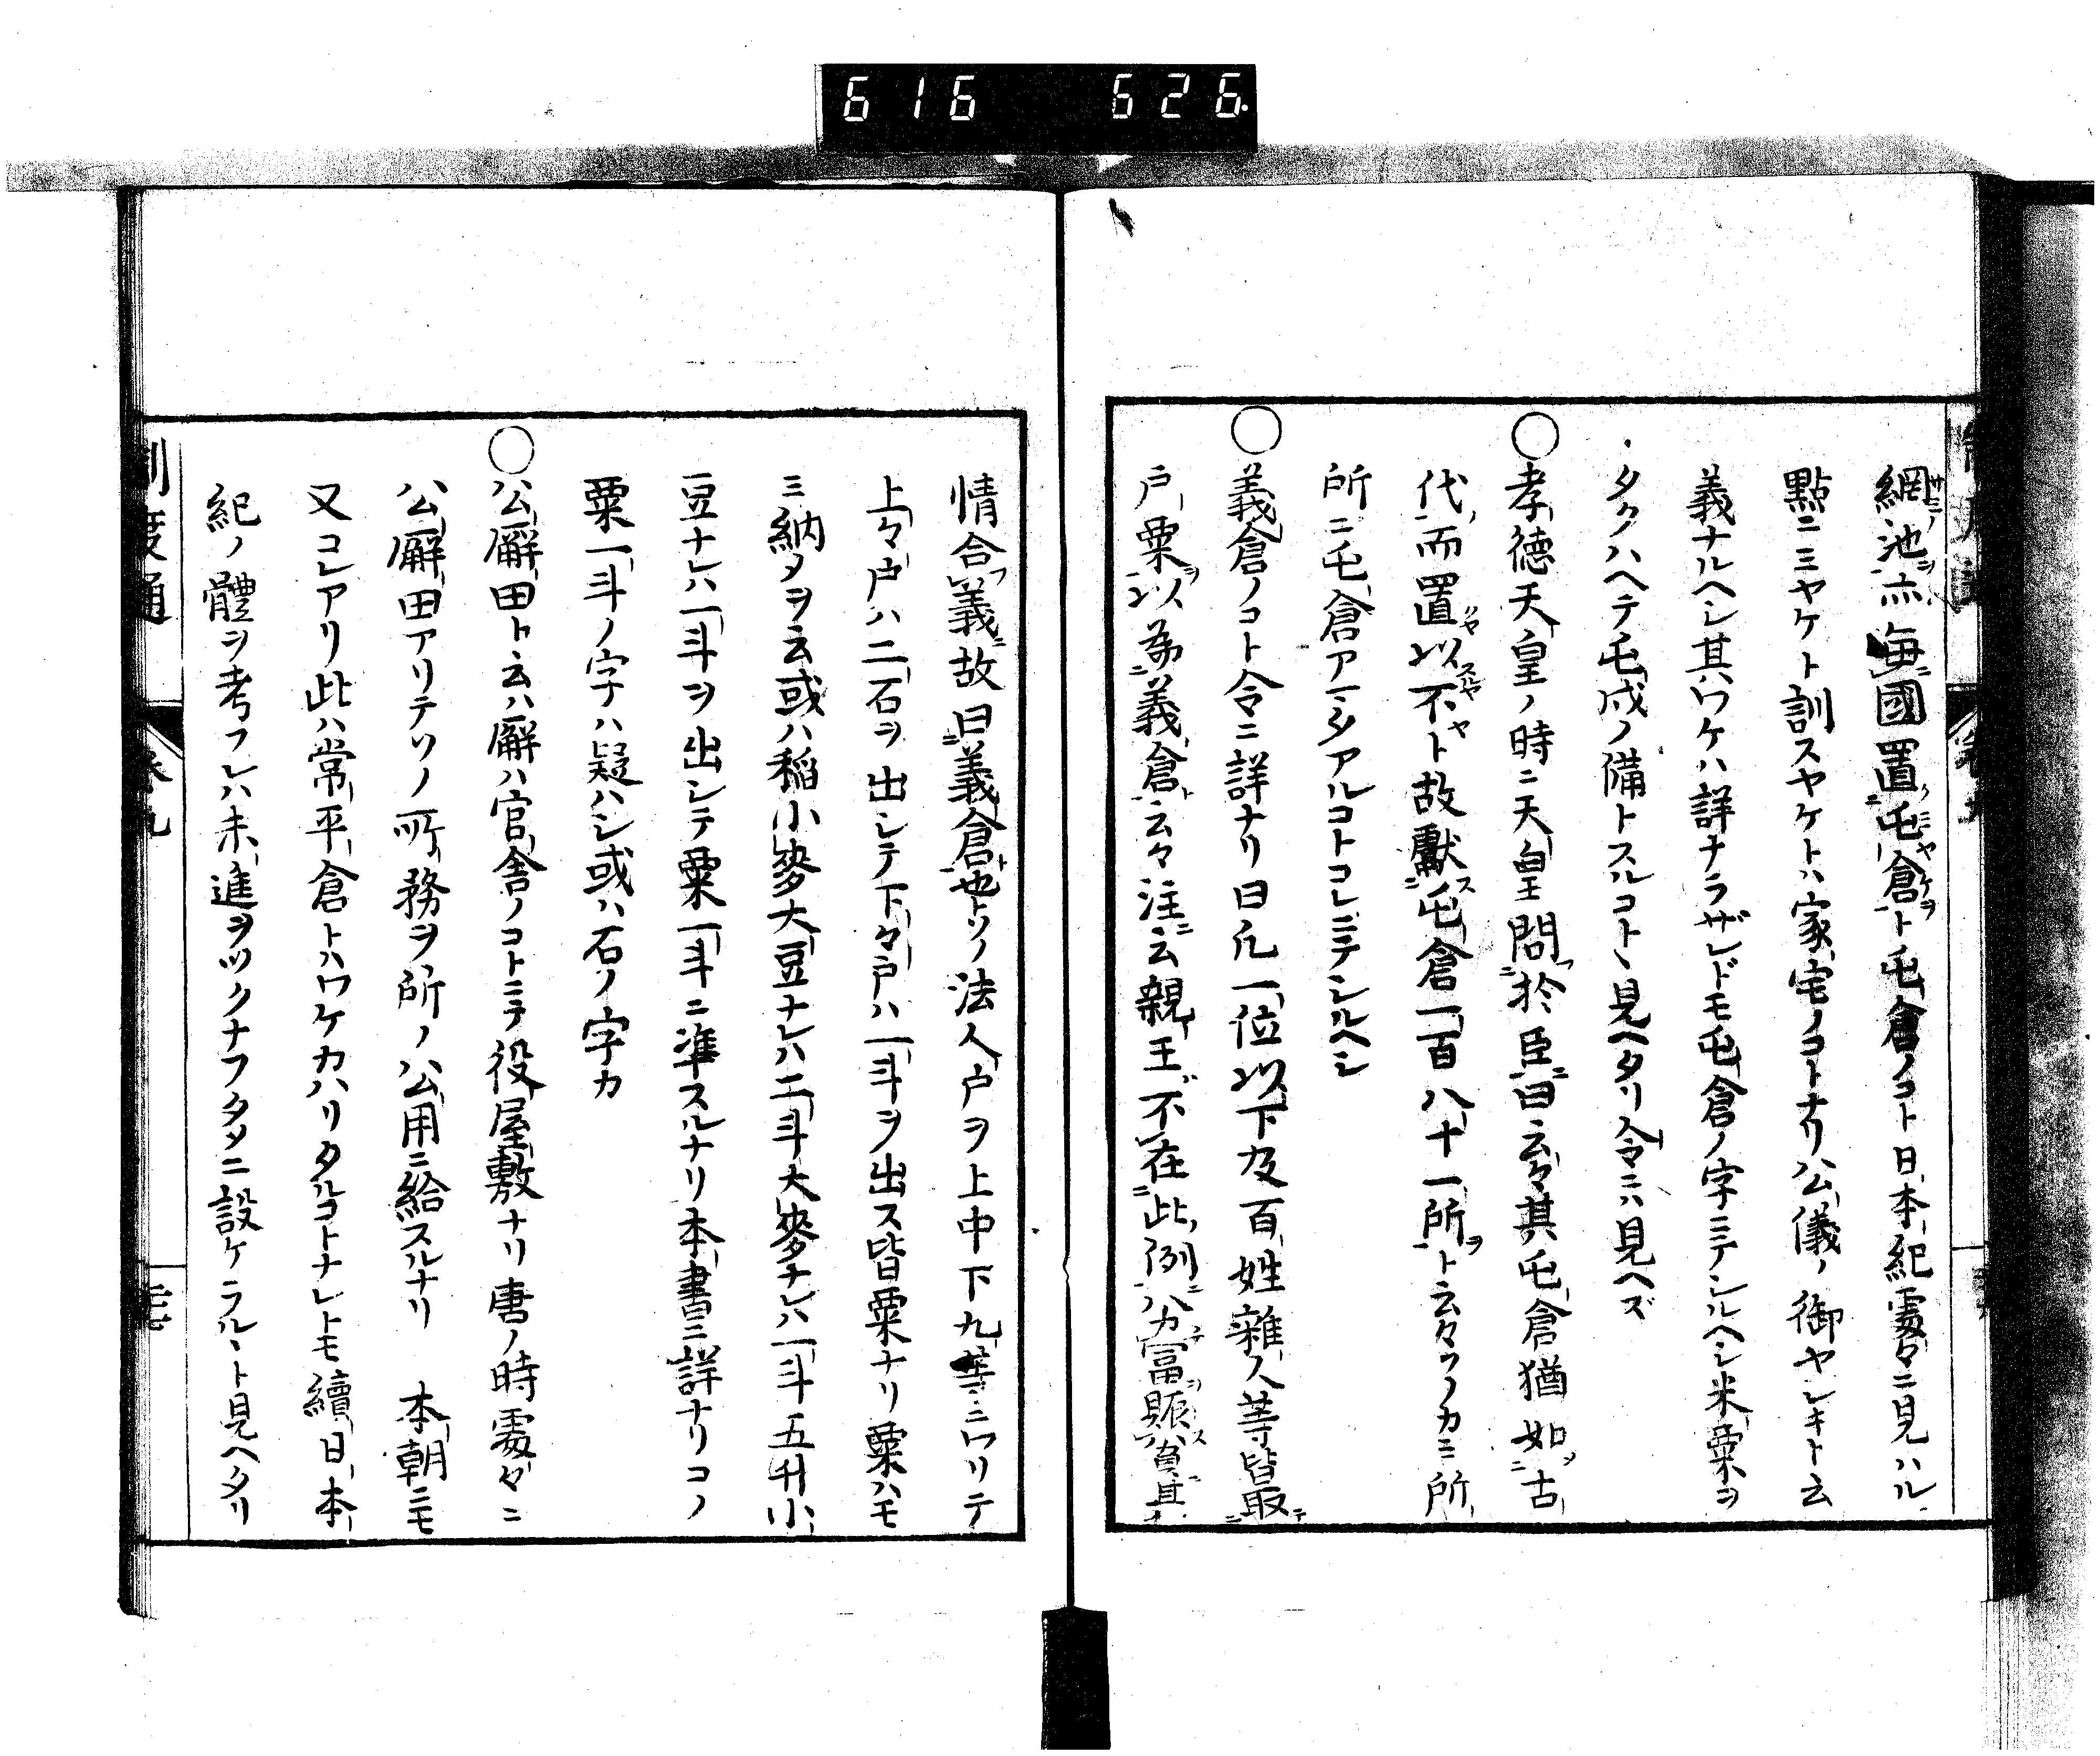 616 626
網池亦毎國置屯倉ト屯倉ノコト日本紀處々ニ見ハル
點ニミヤケト訓スヤケトハ家宅ノコトナリ公儀ノ御ヤシキト云
義ナルヘシ其ワケハ詳ナラザレドモ屯倉ノ字ニテシルヘシ米粟ヲ
タクハヘテ屯戍ノ備トスルコトヽ見ヘタリ令ニハ見ヘズ
○孝徳天皇ノ時ニ天皇問於臣曰云々其屯倉猶如古
代而置以不ト故獻屯倉一百八十一所ト云々ワノカニ所
所ニ屯倉アマタアルコトコレニテシルヘシ
○義倉ノコト令ニ詳ナリ曰凡一位以下及百姓雜人等皆取
戸粟以為義倉云々注云親王不在此例ハカ富賑貧其
情合義故曰義倉也トソノ法人戸ヲ上中下九等ニワリテ
上々戸ハ二石ヲ出シテ下々戸ハ一斗ヲ出ス皆粟ナリ粟ハモ
ミ納メヲ云或ハ稲小麥大豆ナレハ二斗大麥ナレハ一斗五升小
豆ナレハ一斗ヲ出シテ粟一斗ニ準スルナリ本書ニ詳ナリコノ
粟一斗ノ字ハ疑ハシ或ハ石ノ字カ
○公廨田ト云ハ廨ハ官舎ノコトニテ役屋敷ナリ唐ノ時處々ニ
公廨田アリテソノ所務ヲ所ノ公用ニ給スルナリ 本朝ニモ
又コレアリ此ハ常平倉トハワケカハリタルコトナレトモ續日本
紀ノ體ヲ考フレハ未進ヲツクナフタメニ設ケラルヽト見ヘタリ
制度通 巻九